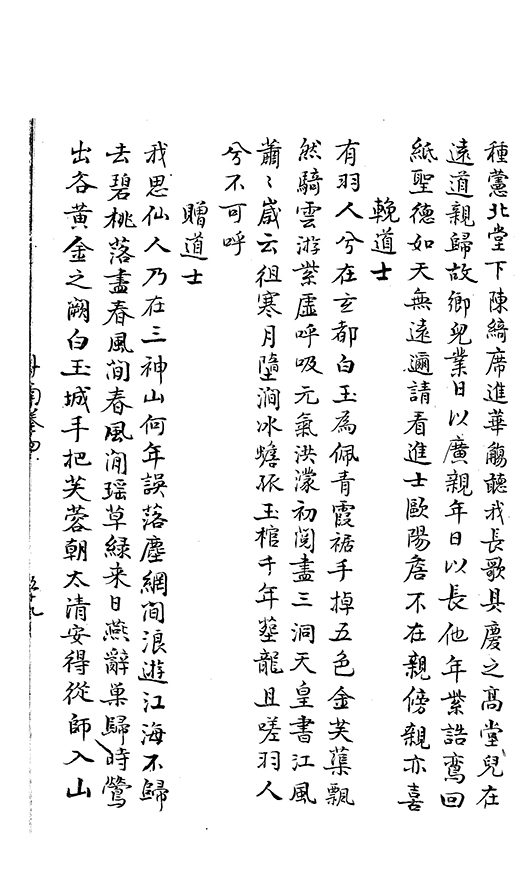 種萱北堂下陳綺席進華觴聽我長歌具慶之高堂兒在
遠道親歸故鄉兒業日以廣親年日以長他年紫誥鸞回
紙聖德如天無遠邇請看進士歐陽詹不在親傍親亦喜
輓道士
有羽人兮在玄都白玉為佩青霞裾手掉五色金芙蕖飄
然騎雲游紫虛呼吸元氣洪濛初閱盡三洞天皇書江風
蕭〻歲云徂寒月墮澗冰蟾孤玉棺千年塟龍且嗟羽人
兮不可呼
贈道士
我思仙人乃在三神山何年誤落塵網間浪遊江海不歸
去碧桃落盡春風間春風間瑶草緑来日燕辭巢歸時鶯
出各黄金之闕白玉城手把芙蓉朝太清安得從師入山
丹
卷四
五十九